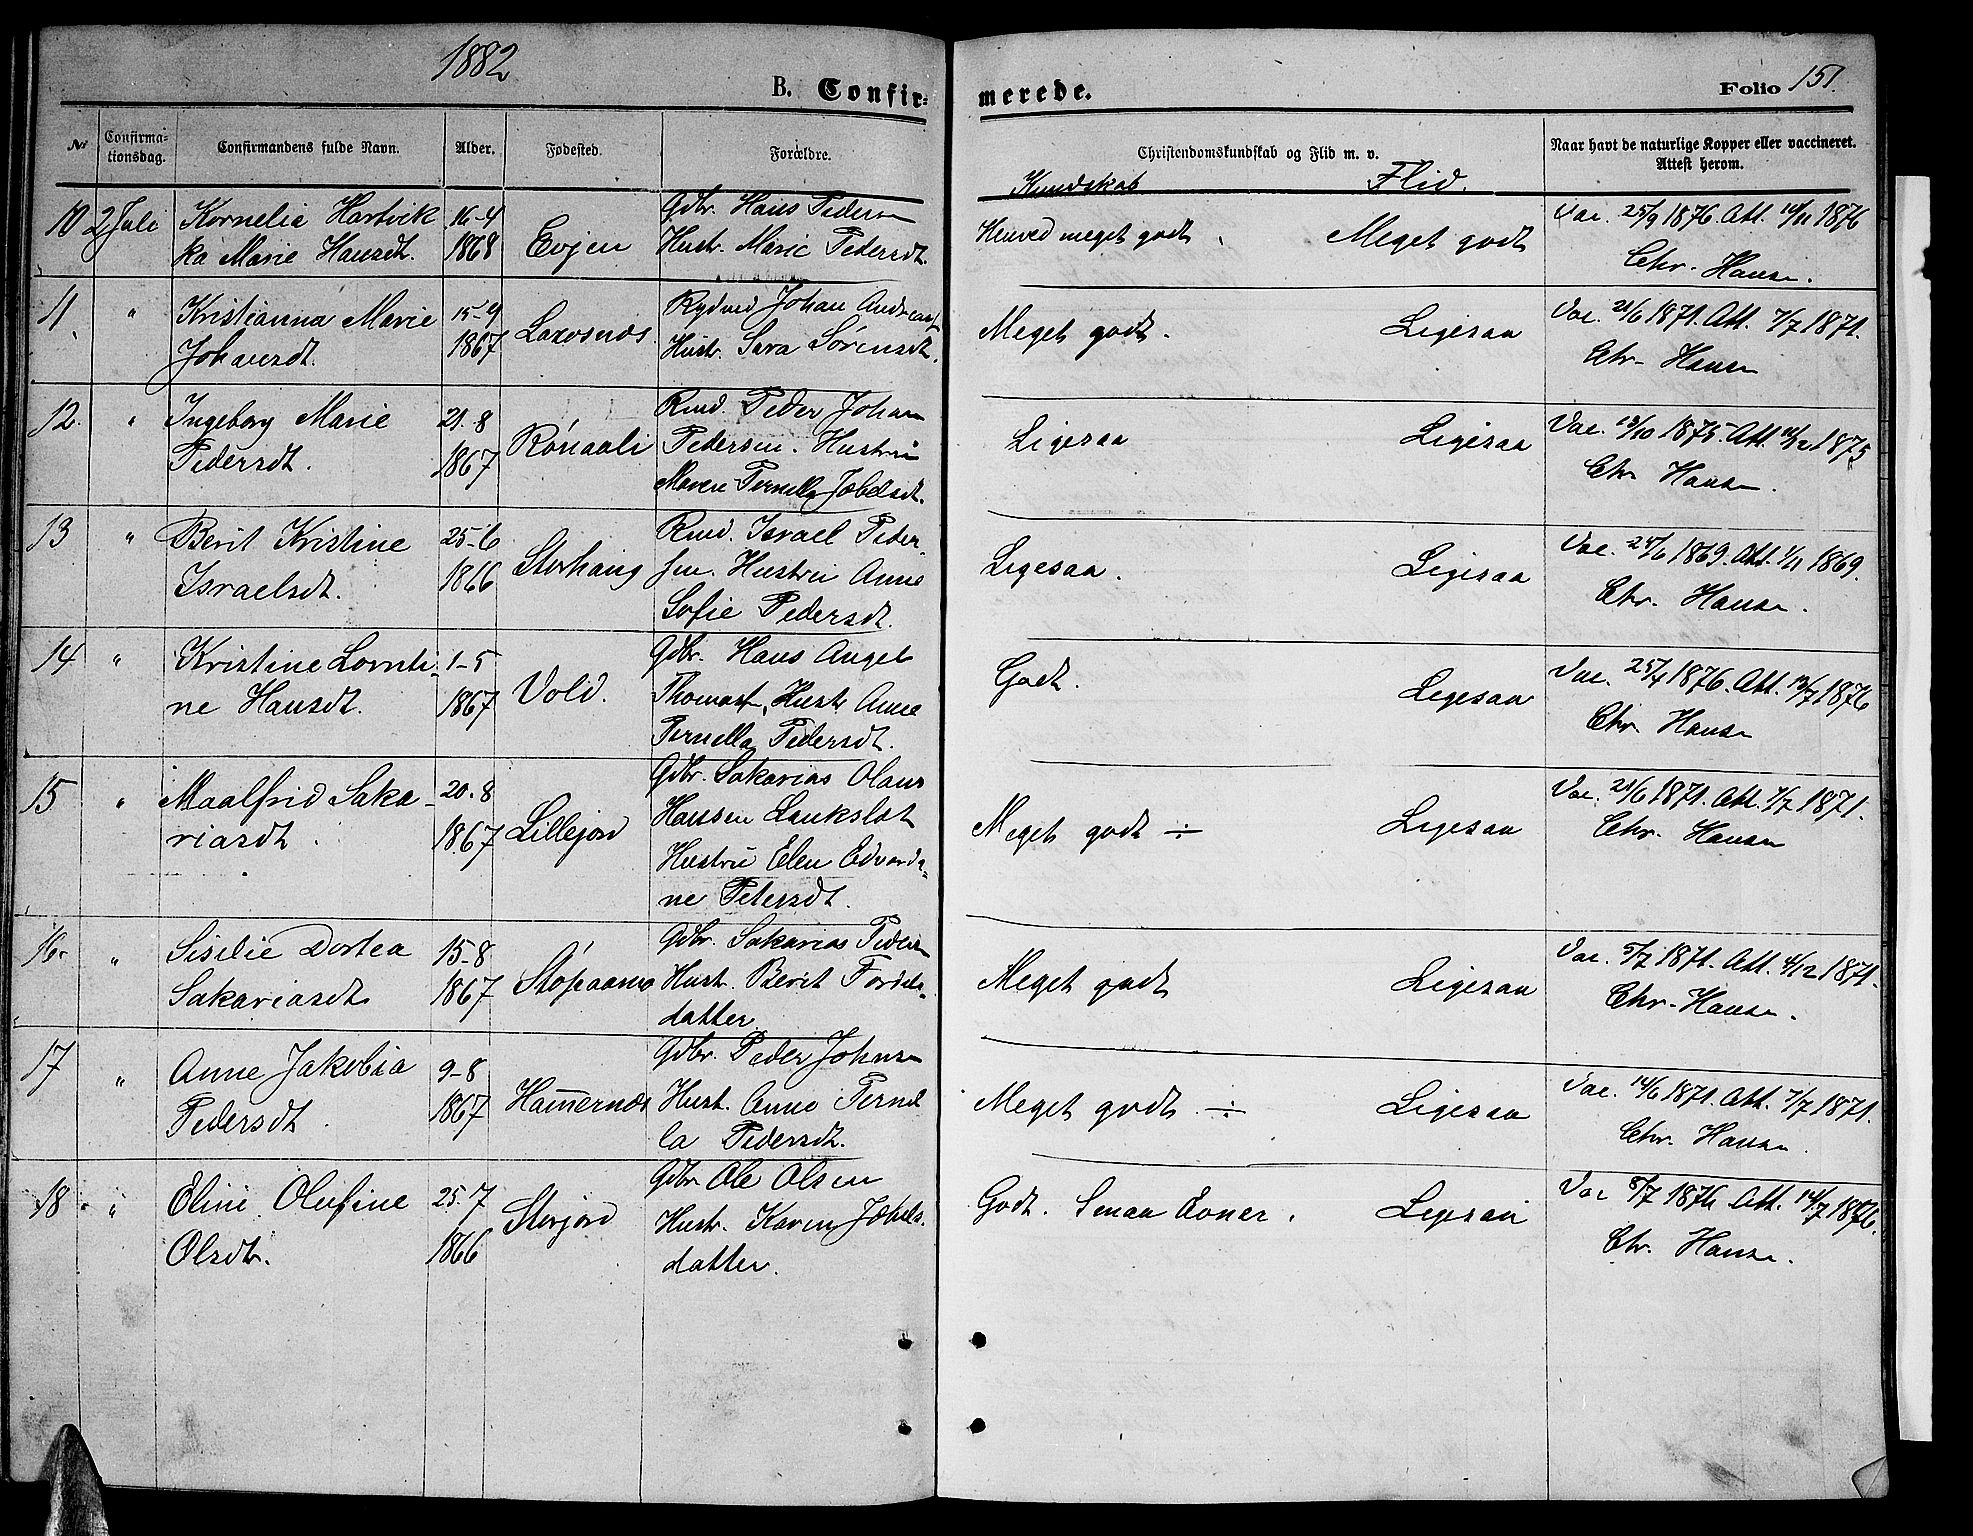 1882
B. Confir=
merede.
Folio 151.
No
Confirma-
tionsdag.
Confirmandens fulde Navn.
Alder.
Fødested.
Forældre.
Christendomskundskab og Flid m. v.
Kundskab
Flid.
Naar havt de naturlige Kopper eller vaccineret.
Attest herom.
10 2 Juli Kornelia Hartvik
ka Marie Hansdt.
16-4
1868
Evjen
Gdbr. Hans Pedersen
Hustr. Marie Pedersdt.
Henved meget godt. Meget godt
Vac. 25/9 1876. Att. 10/11 1876
Chr. Hansen.
11 " Kristianna Marie
Johansdt.
15-9
1867
Laxosnæs
Rydmd Johan Andreas
Hustr. Sara Sørensdt.
Meget godt. Ligesaa
Vac. 21/6 1871. Att. 7/7 1871.
Chr. Hansen
12. " Ingeborg Marie
Pedersdt.
21-8
1867
Rónaali
Rmd. Peder Johan
Pedersen. Hustru
Maren Pernella Jobelsdt.
Ligesaa Ligesaa
Vac. 13/10 1875. Att. 12 1875
Chr Hansen.
13 " Berit Kristine
Israelsdt.
25-6
1866
Storhaug
Rmd. Israel Peder-
sen. Hustru Anne
Sofie Pedersdt.
Ligesaa. Ligesaa
Vac. 24/6 1869. Att. 1/11 1869.
Chr. Hansen.
14 " Kristine Lornti-
ne Hansdt.
1-5
1867
Vold.
Gdbr. Hans Angel
Thomas, Hustr Anne
Pernella Pedersdt.
Godt. Ligesaa
Vac. 25/4 1876. Att. 13/7 1876
Chr. Hansen
15 " Maalfrid Saka-
riasdt.
20-8
1867
Lillejord
Gdbr. Sakarias Olaus
Hansen Lankslot
Hustru Elen Edvarda-
ne Petersdt.
Meget godt ÷ Ligesaa
Vac. 21/6 1871. Att. 7/7 1871.
Chr. Hansen
16. " Siselie Dortea
Sakariasdt
15-8
1867
Stópaamo
Gdbr. Sakarias Pedersen
Hustr. Berit Fordels-
datter
Meget godt Ligesaa
Vac. 5/7 1871. Att. 4/12 1871.
Chr. Hansen.
17 " Anne Jakobia
Pedersdt.
9-8
1867
Hamernæs
Gdbr. Peder Johnsen
Hust. Anne Pernel
la Pedersdt.
Meget godt. ÷ Ligesaa
Vac. 14/6 1871. Att. 7/7 1871.
Chr. Hansen.
18. " Eline Olufine
Olsdtr.
25-7
1866
Storjord
Gdbr Ole Olsen
Hustr. Karen Jobels-
datter.
Godt. Smaa Evner. Ligesaa
Vac 8/7 1876 Att. 14/7 1876.
Chr. Hansen.